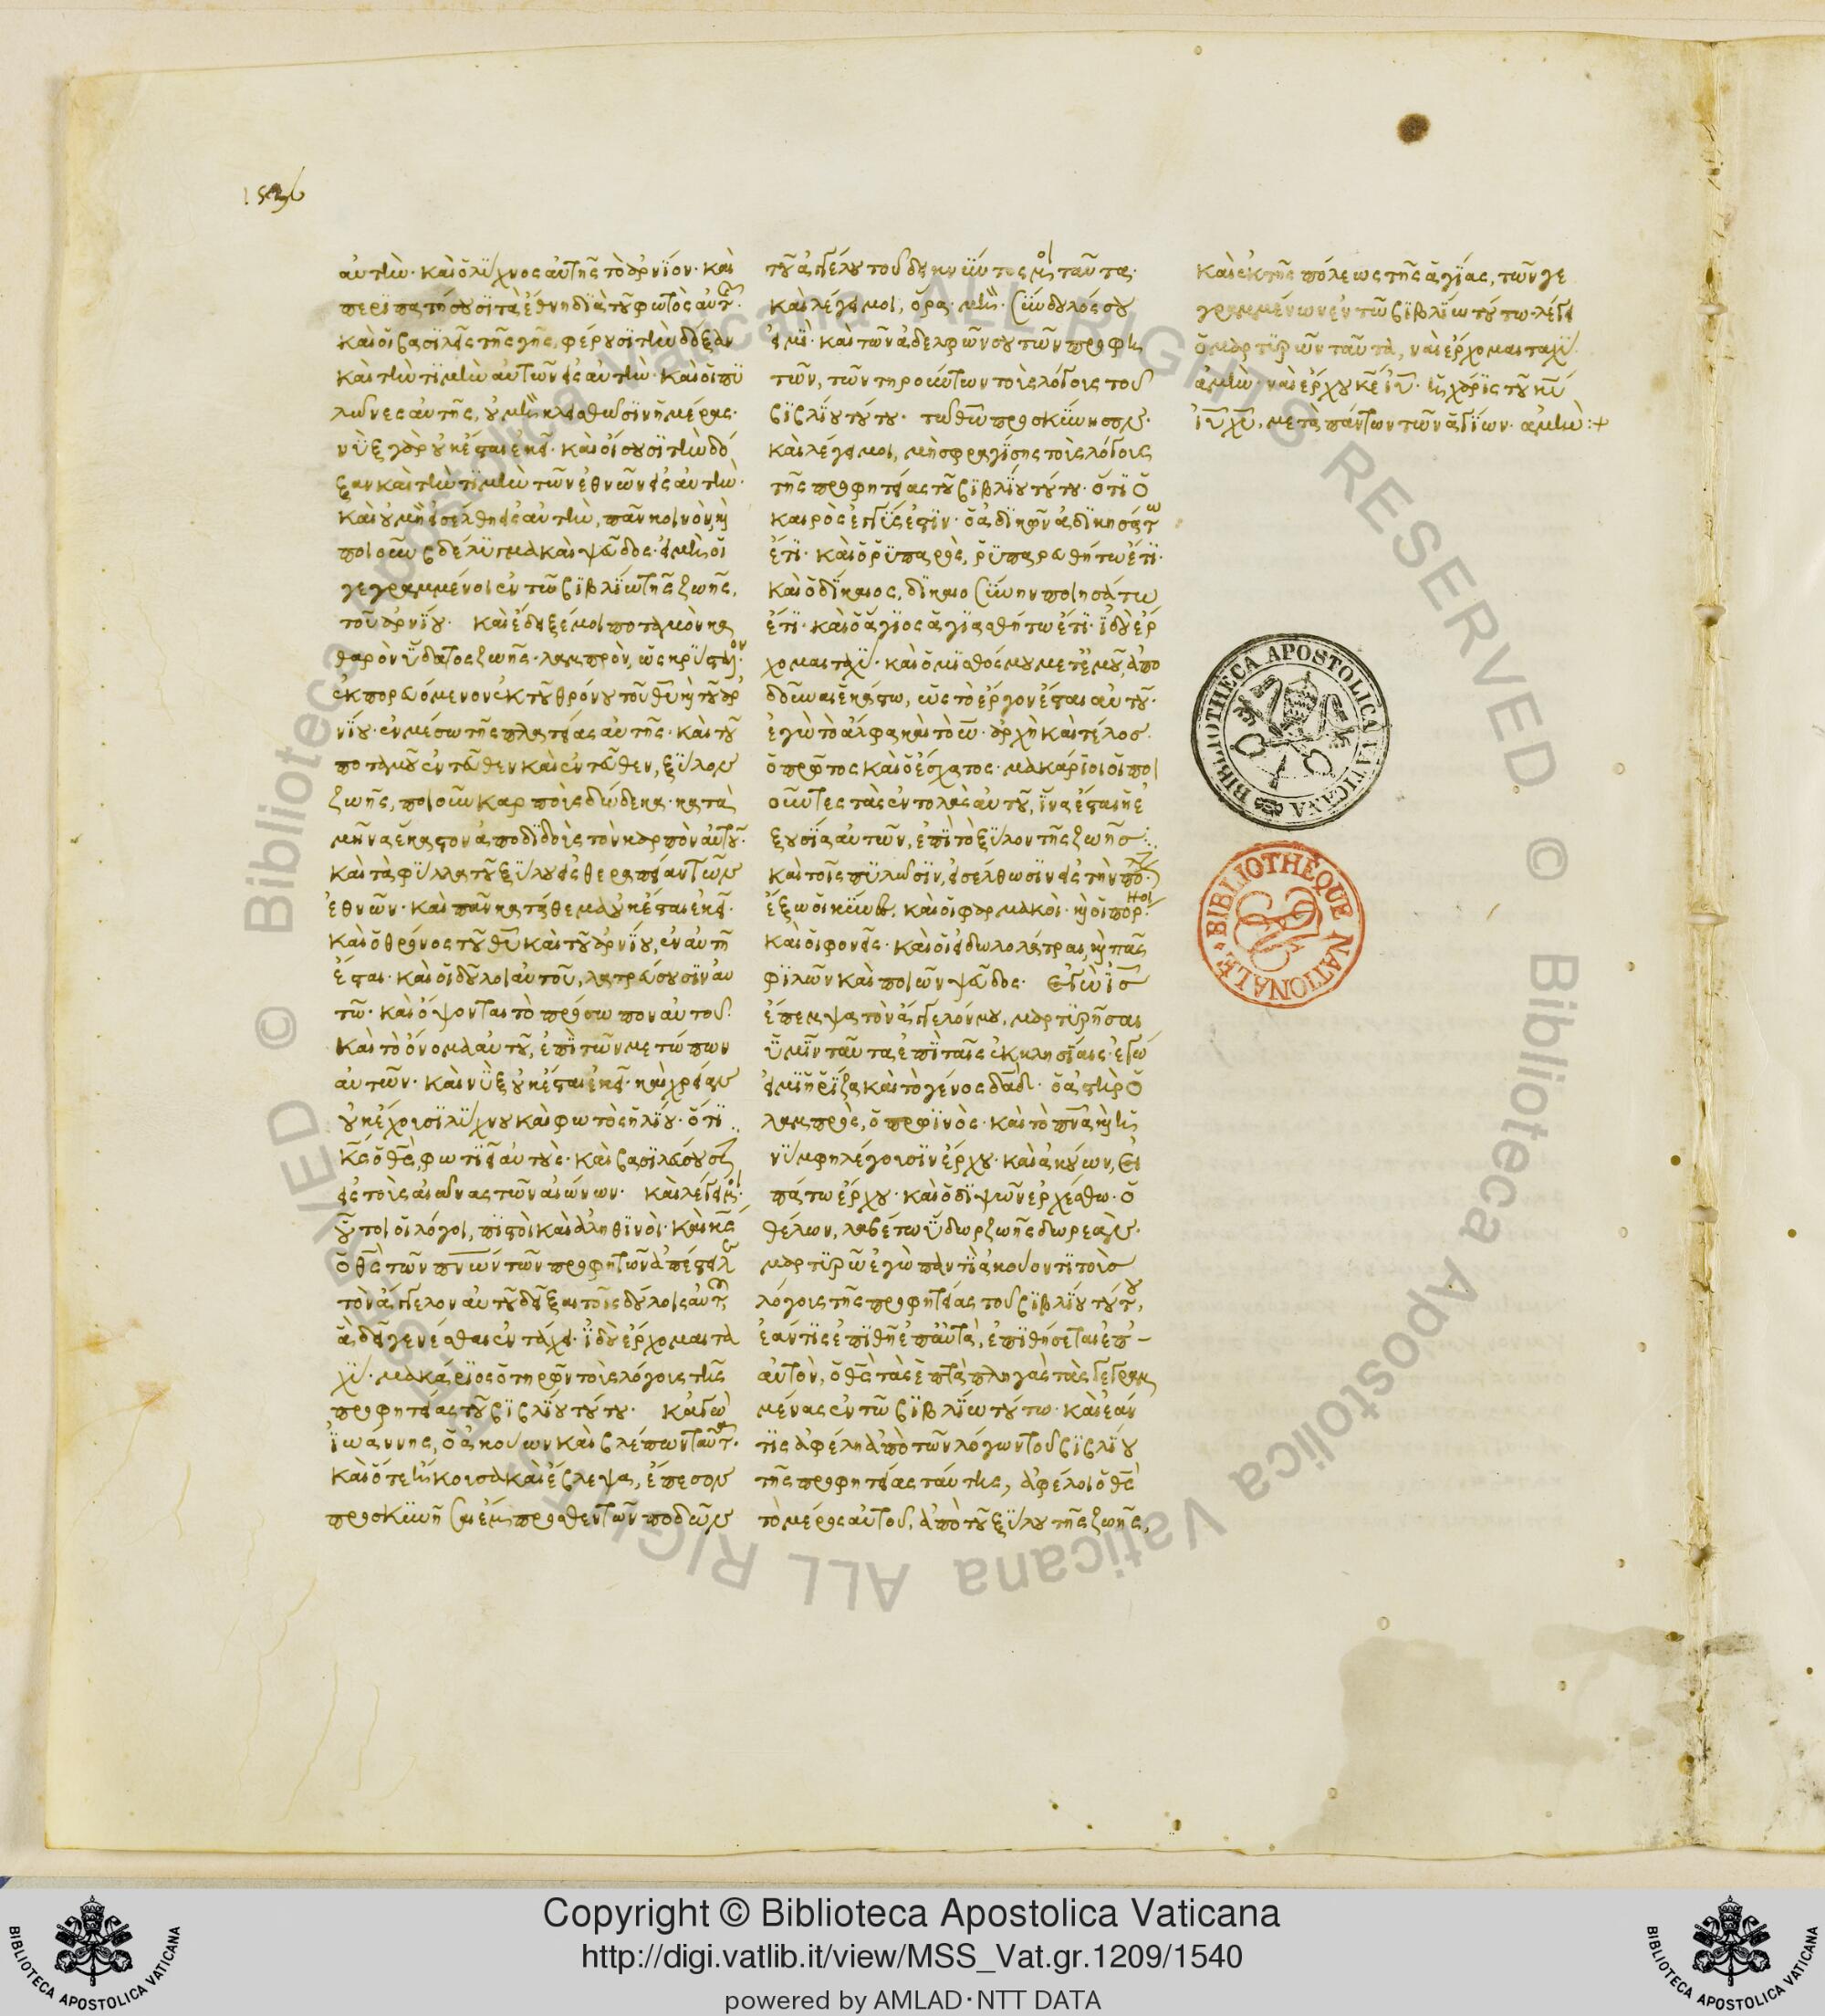 1536
αὐτὴν· καὶ ὁ λύχνος αὐτῆς τὸ ἀρνίον· καὶ
περιπατήσουσι τὰ ἔθνη διὰ τοῦ φωτὸς αὐτῆς·
καὶ οἱ βασιλεῖς τῆς γῆς, φέρουσι τὴν δόξαν
καὶ τὴν τιμὴν αὐτῶν εἰς αὐτήν· καὶ οἱ πυ
λῶνες αὐτῆς, οὐ μὴ κλεισθῶσιν ἡμέρας·
νὺξ γὰρ οὐκ ἔσται ἐκεῖ· καὶ οἴσουσι τὴν δό
ξαν καὶ τὴν τιμὴν τῶν ἐθνῶν εἰς αὐτήν·
καὶ οὐ μὴ εἰσέλθῃ εἰς αὐτὴν, πᾶν κοινὸν, καὶ
ποιοῦν βδέλυγμα καὶ ψεῦδος· εἰ μὴ οἱ
γεγραμμένοι ἐν τῷ βιβλίῳ τῆς ζωῆς,
τοῦ ἀρνίου· καὶ ἔδειξέ μοι ποταμὸν κα
θαρὸν ὕδατος ζωῆς· λαμπρὸν, ὡς κρύσταλλον·
ἐκπορευόμενον ἐκ τοῦ θρόνου τοῦ θυ καὶ τοῦ ἀρ
νίου· ἐν μέσῳ τῆς πλατείας αὐτῆς· καὶ τοῦ
ποταμοῦ ἐντεῦθεν καὶ ἐντεῦθεν, ξύλον
ζωῆς, ποιοῦν καρποὺς δώδεκα· κατὰ
μῆνα ἕκαστον ἀποδιδοὺς τὸν καρπὸν αὐτοῦ·
καὶ τὰ φύλλα τοῦ ξύλου εἰς θεραπείαν τῶν
ἐθνῶν· καὶ πᾶν κατάθεμα οὐκ ἔσται ἐκεῖ·
καὶ ὁ θρόνος τοῦ θυ καὶ τοῦ ἀρνίου, ἐν αὐτῇ
ἔσται· καὶ οἱ δοῦλοι αὐτοῦ, λατρεύσουσιν αὐ
τῷ· καὶ ὄψονται τὸ πρόσωπον αὐτοῦ·
καὶ τὸ ὄνομα αὐτοῦ, ἐπὶ τῶν μετώπων
αὐτῶν· καὶ νὺξ οὐκ ἔσται ἐκεῖ· καὶ χρείαν
οὐκ ἔχουσι λύχνου καὶ φωτὸς ἡλίου· ὅτι
κς ὁ θς, φωτιεῖ αὐτούς· καὶ βασιλεύσουσιν
εἰς τοὺς αἰῶνας τῶν αἰώνων· καὶ λέγει μοι·
οὗτοι οἱ λόγοι, πιστοὶ καὶ ἀληθινοί· καὶ κς
ὁ θς τῶν πνων τῶν προφητῶν ἀπέστειλε
τὸν ἄγγελον αὐτοῦ δεῖξαι τοῖς δούλοις αὐτοῦ
ἃ δεῖ γενέσθαι ἐν τάχει· ἰδοὺ ἔρχομαι τα
χύ· μακάριος ὁ τηρῶν τοὺς λόγους τῆς
προφητείας τοῦ βιβλίου τούτου· κἀγὼ
ἰωάννης, ὁ ἀκούων καὶ βλέπων ταῦτα·
καὶ ὅτε ἤκουσα καὶ ἔβλεψα, ἔπεσον
προσκυνῆσαι ἔμπροσθεν τῶν ποδῶν
τοῦ ἀγγέλου τοῦ δεικνύντος μοι ταῦτα·
καὶ λέγει μοι, ὅρα μή· σύνδουλός σου
εἰμὶ· καὶ τῶν ἀδελφῶν σου τῶν προφη
τῶν, τῶν τηρούντων τοὺς λόγους τοῦ
βιβλίου τούτου· τῷ θω προσκύνησον·
καὶ λέγει μοι, μὴ σφραγίσῃς τοὺς λόγους
τῆς προφητείας τοῦ βιβλίου τούτου· ὅτι ὁ
καιρὸς ἐγγύς ἐστιν· ὁ ἀδικῶν ἀδικησάτω
ἔτι· καὶ ὁ ῥυπαρὸς, ῥυπαρωθήτω ἔτι·
καὶ ὁ δίκαιος, δικαιοσύνην ποιησάτω
ἔτι· καὶ ὁ ἅγιος ἁγιασθήτω ἔτι· ἰδοὺ ἔρ
χομαι ταχύ· καὶ ὁ μισθός μου μετ᾽ ἐμοῦ, ἀπο
δοῦναι ἑκάστῳ, ὡς τὸ ἔργον ἔσται αὐτοῦ·
ἐγὼ τὸ ἄλφα καὶ τὸ ω· ἀρχὴ καὶ τέλος·
ὁ πρῶτος καὶ ὁ ἔσχατος· μακάριοι οἱ ποι
οῦντες τὰς ἐντολὰς αὐτοῦ, ἵνα ἔσται ἡ ἐ
ξουσία αὐτῶν, ἐπὶ τὸ ξύλον τῆς ζωῆς
καὶ τοῖς πυλῶσιν, εἰσέλθωσιν εἰς τὴν πόλιν·
ἔξω οἱ κύνες, καὶ οἱ φαρμακοὶ· καὶ οἱ πόρνοι·
καὶ οἱ φονεῖς· καὶ οἱ εἰδωλολάτραι, καὶ πᾶς
φιλῶν καὶ ποιῶν ψεῦδος· ἐγὼ ις
ἔπεμψα τὸν ἄγγελόν μου, μαρτυρῆσαι
ὑμῖν ταῦτα ἐπὶ ταῖς ἐκκλησίαις· ἐγώ
εἰμι ἡ ῥίζα καὶ τὸ γένος δαδ· ὁ ἀστὴρ ὁ
λαμπρὸς, ὁ πρωϊνός· καὶ τὸ πνα καὶ ἡ
νύμφη λέγουσιν ἔρχου· καὶ ὁ ἀκούων, εἰ
πάτω ἔρχου· καὶ ὁ διψῶν ἐρχέσθω· ὁ
θέλων, λαβέτω ὕδωρ ζωῆς δωρεάν·
μαρτυρῶ ἐγὼ παντὶ ἀκούοντι τοὺς
λόγους τῆς προφητείας τοῦ βιβλίου τούτου,
ἐάν τις ἐπιθῇ ἐπ᾽ αὐτὰ, ἐπιθήσεται ἐπ᾽
αὐτὸν, ὁ θς τὰς ἑπτὰ πληγὰς τὰς γεγραμ
μένας ἐν τῷ βιβλίῳ τούτῳ· καὶ ἐάν
τις ἀφέλῃ ἀπὸ τῶν λόγων τοῦ βιβλίου
τῆς προφητείας ταύτης, ἀφέλοι ὁ θς
τὸ μέρος αὐτοῦ, ἀπὸ τοῦ ξύλου τῆς ζωῆς,
καὶ ἐκ τῆς πόλεως τῆς ἁγίας, τῶν γε
γραμμένων ἐν τῷ βιβλίῳ τούτῳ· λέγει
ὁ μαρτυρῶν ταῦτα, ναὶ ἔρχομαι ταχύ·
ἀμήν· ναὶ ἔρχου κε ιυ· ἡ χάρις τοῦ κυ
ιυ χυ, μετὰ πάντων τῶν ἁγίων· ἀμήν:+
BIBLIOTHECA APOSTOLICA VATICANA
BIBLIOTHÈQUE NATIONALE
© Biblioteca Apostolica Vaticana ALL RIGHTS RESERVED © Biblioteca Apostolica Vaticana ALL RIGHTS RESERVED
Copyright © Biblioteca Apostolica Vaticana
http://digi.vatlib.it/view/MSS_Vat.gr.1209/1540
powered by AMLAD·NTT DATA
BIBLIOTECA APOSTOLICA VATICANA
BIBLIOTECA APOSTOLICA VATICANA